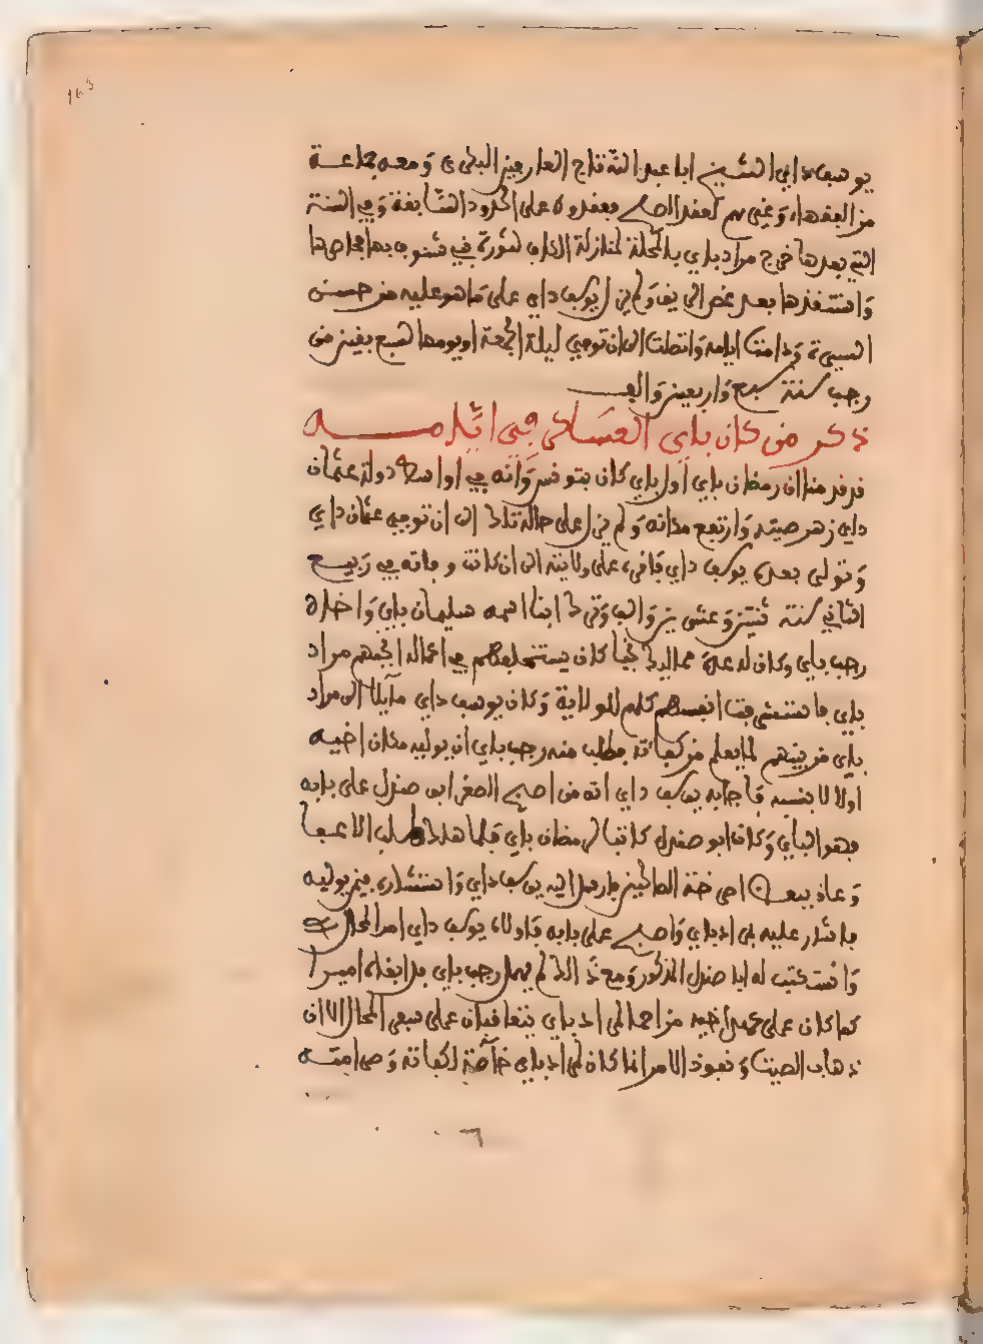 165
يوسف داي الشيخ ابا عبد الله تاج العارفين البكري ومعه جماعة
من الفقهاء وغيرهم لعقد الصلح فعقدوه على الحدود السابقة وفي السنة
التي بعدها خرج مراد باي بالمحلة لمنازلة الكاف لثورة في شنوف بها فحاصرها
واستنفذها بعد ولم يزل يوسف داي على ما هو عليه من حسن
السيرة ودامت ايامه واتصلت الى ان توفي ليلة الجمعة او يومها لسبع بقين من
رجب سنة سبع واربعين والف
ذكر من كان باي العساكر في ايامه
قد قدمنا ان رمضان باي اول باي كان بتونس وانه في اواسط دولة عثمان
داي زهر صيته وارتفع مكانه ولم يزل على حالة تلك الى ان توفي عثمان داي
وتولى بعده يوسف داي فاقره على ولايته الى ان كانت وفاته في ربيع
الثاني سنة ثنتين وعشرين والف وترك ابنا اسمه سليمان باي واخاه
رجب باي وكان له عدة مماليك نجبا كان يستخلفهم في اعماله انجبهم مراد
باي فاستشرفت انفسهم كلهم للولاية وكان يوسف داي مآيلا الى مراد
باي من بينهم لما يعلم من كفاءته فطلب منه رجب باي ان يوليه مكان اخيه
اولا لا بنسبه فاجابه يوسف داي انه من اصبح الصغر ابو صندل على بابه
فهو الباي وكان ابو صندل كاتبا لرمضان باي فلما هلك طلب الاعفا
وعاذ ببعض اضرحة الصالحين فارسل اليه يوسف داي واستشاره فيمن يوليه
فاشار عليه بمراد باي واصبح على بابه فاولاه يوسف داي امر المحال
واستكتب له ابا صندل المذكور ومع ذلك لم يهمل رجب باي بل ابقاه اميرا
كما كان على عهد اخيه من اعمال مراد باي يتعاقبان على سفر المحال الا ان
ذهاب الصيت ونفوذ الامر انما كان لمراد باي خاصة لكفاءته وصرامته